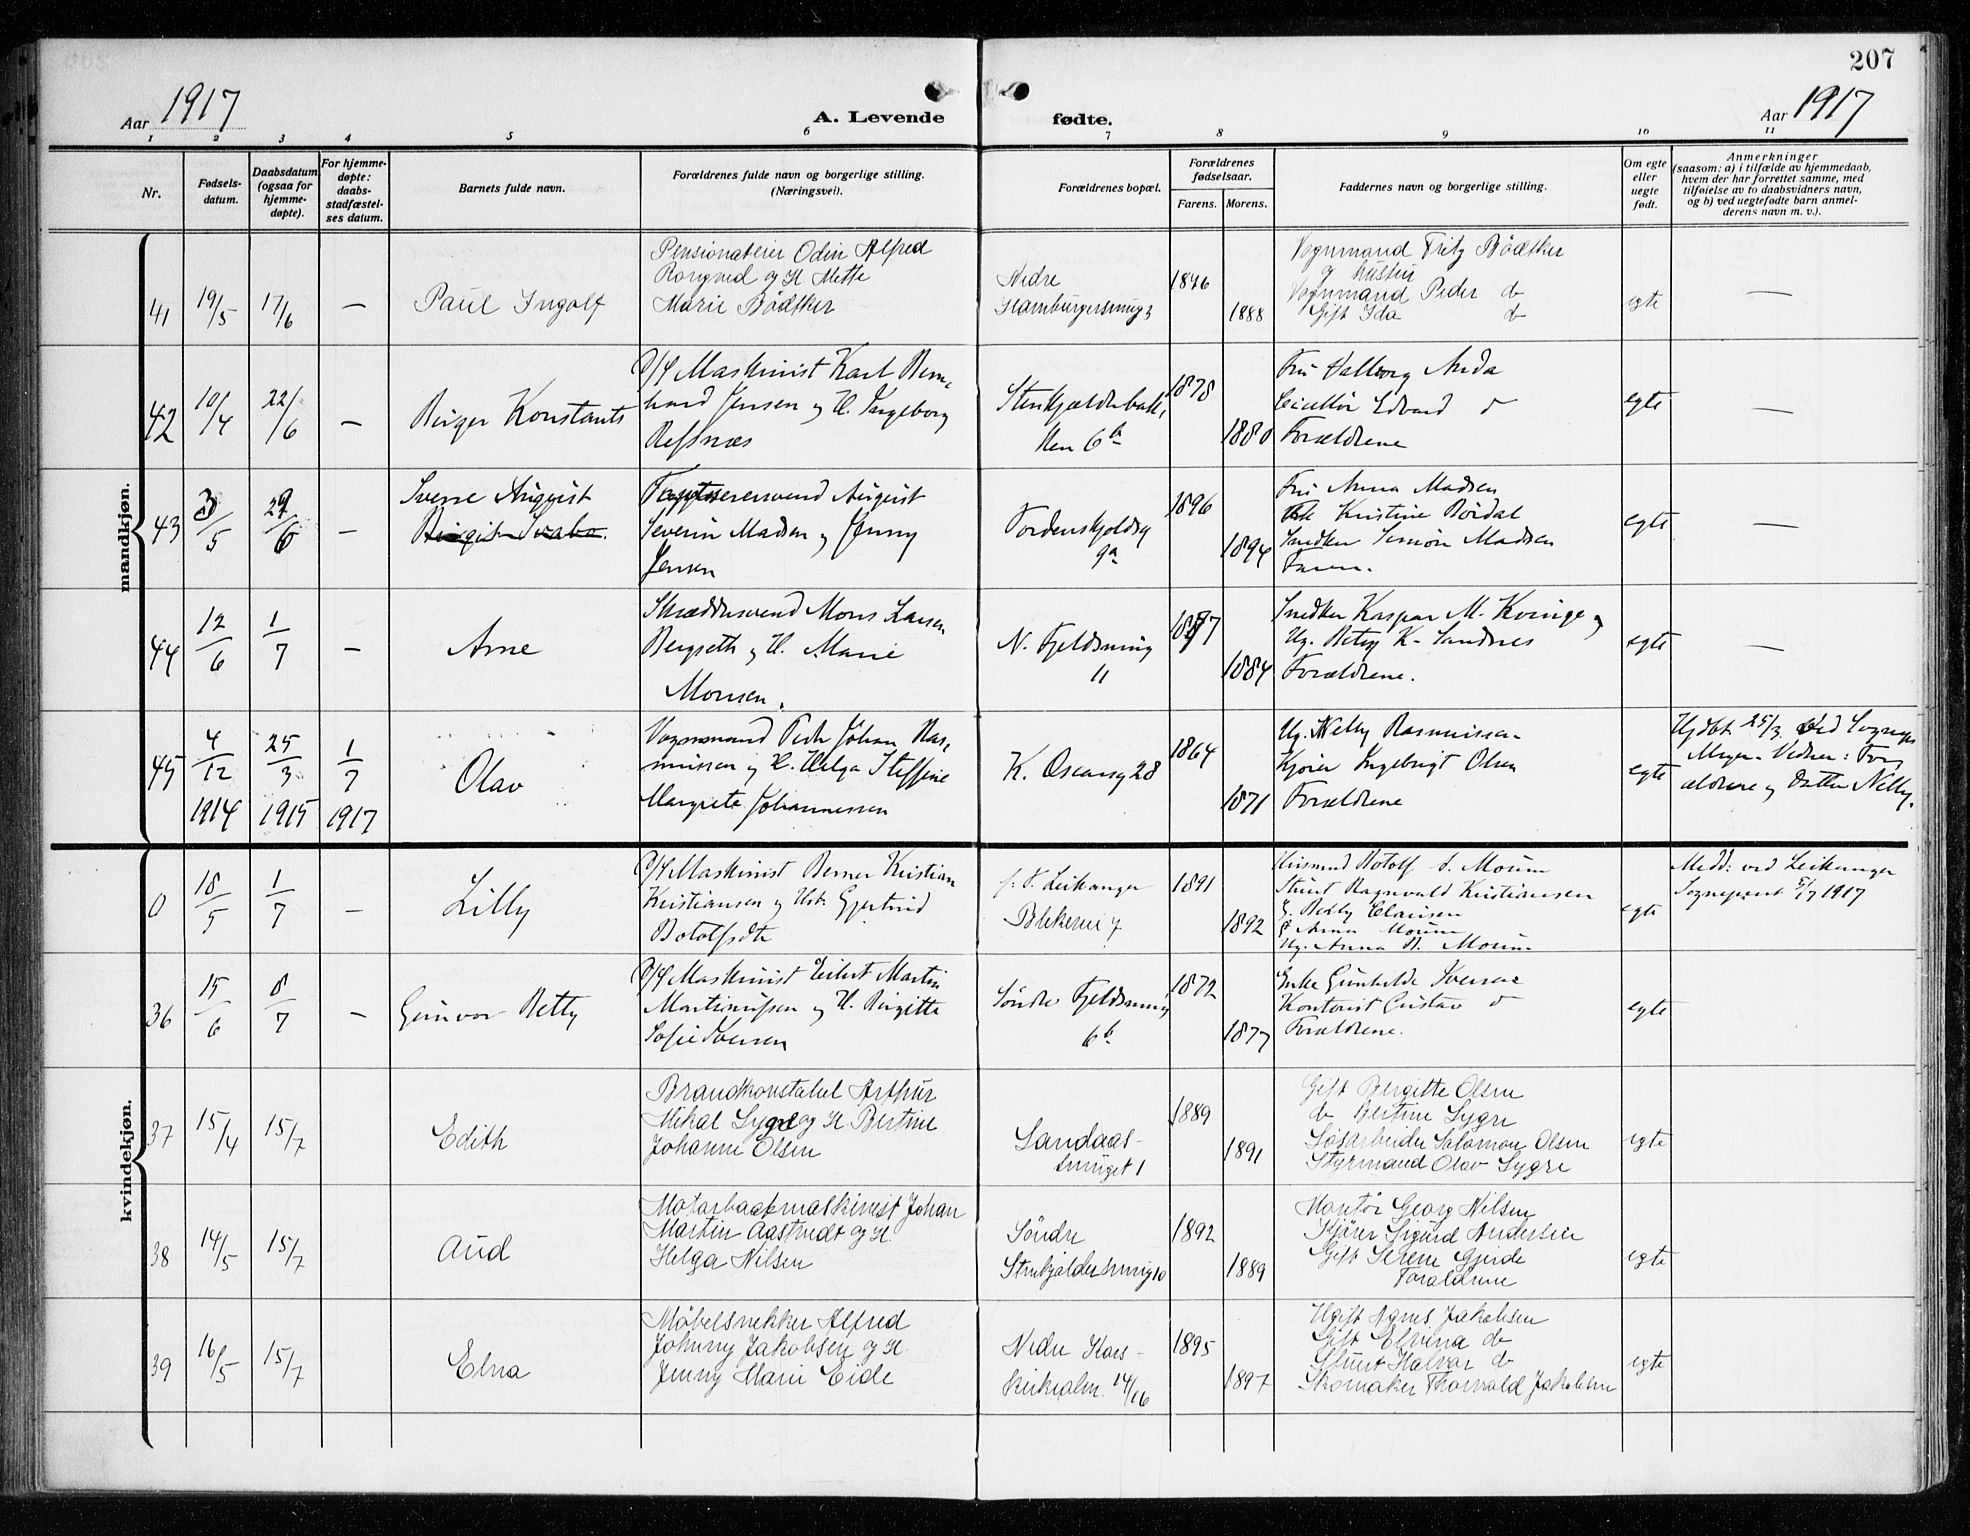 207
Aar 1917
A. Levende fødte.
Aar 1917
1 2 3 4 5 6 7 8 9 10 11
Nr.
Fødsels-
datum.
Daabsdatum
(ogsaa for
hjemme-
døpte).
For hjemme-
døpte:
daabs-
stadfæstel-
ses datum.
Barnets fulde navn.
Forældrenes fulde navn og borgerlige stilling.
(Næringsvei).
Forældrenes bopæl.
Forældrenes
fødselsaar.
Farens. Morens.
Faddernes navn og borgerlige stilling.
Om egte
eller
uegte
født.
Anmerkninger
(saasom: a) i tilfælde av hjemmedaab,
hvem der har forrettet samme, med
tilføielse av to daabsvidners navn,
og b) ved uegtefødte barn anmel-
derens navn m. v.).
mandkjøn.
41
19/5
17/6
—
Paul Ingolf
Odin Alfred
og H Mette
Marie Bødtker
Nedre
Hamburgersmug 3
1888
Vognmand Fritz Bødtker
og hustru
Vognmand Peder do
Gift Ida do
egte
—
42
10/4
22/6
—
Birger Konstants
D/S Maskinist Karl Bern-
hard Jensen og H. Ingeborg
Refsnæs
Stenkjælderbak-
ken 6b
1878
1880
Fru Valborg
Edvard do
Forældrene
egte
—
43
3/5
29/6
—
Sverre August
August
Severin Madsen og Jenny
Jensen
Tordenskjoldsg
9a
1896
1894
Fru Anna Madsen
Kristine
Snedker Simon Madsen
Faren.
egte
—
44
12/6
1/7
—
Arne
Skræddersvend Mons Larsen
Bergseth og H. Marie
Monsen.
N. Fjeldsmug
11
1877
1884
Snedker Kaspar M. Kvinge og
Ug. Betsy K. Sandnes
Forældrene.
egte
—
45
4/12
1914
25/3
1915
1/7
1917
Olav
Vognmand Peder Johan Ras-
mussen og H. Helga Steffine
Margrete Johannessen
K. Oscarsg 28
1864
1871
Ug. Nelly Rasmussen
Kjører Ingebrigt Olsen
Forældrene
egte
Hjdbt. 25/3 ved Sognepr
Meyer. Vidner: For-
ældrene og Datter Nelly.
kvindekjøn.
0
18/5
1/7
—
Lilly
D/S Maskinist Berner Kristian
Kristiansen og Hst. Gjertrud
Botolfsdtr
f. t. Leikanger
Blekevei 7
1891
1892
Botolf
Ragnvald Kristiansen
G. Betsy Clausen
G. Anna
Ug. Anna B.
egte
Medd: ved Leikanger
Sogneprest 5/7 1917
36
15/6
8/7
—
Gunvor Betty
D/S Maskinist Eilert Martin
Martinussen og H. Birgitte
Sofie Iversen
Søndre Fjeldsmug
6b
1872
1877
Enke Gunhilde Iversen
Kontorist Gustav do
Forældrene.
egte
37
15/4
15/7
Edith
Brandkonstabel Arthur
Mikal Sygre og H Bertine
Johanne Olsen
Sandaas-
smuget 1
1889
1891
Gift Bergitte Olsen
do Bertine Sygre
Løsarbeider Salomon Olsen
Styrmand Olav Sygre
egte
38
14/5
15/7
Aud
Motorbaatmaskinist Johan
Martin Aastvedt og H.
Helga Nilsen
Søndre
Stenkjældersmug 10
1892
1889
Montør Georg Nilsen
Kjører Sigurd Andersen
Gift Serene Gjerde
Forældrene
egte
39
16/5
15/7
Elna
Møbelsnekker Alfred
Johnny Jakobsen og H
Jenny Marie Eide
Nedre Kors-
kirkealm. 14/16
1895
1897
Ugift Agnes Jakobsen
Gift Elvina do
Halvor do
Skomaker Thorvald Jakobsen
egte